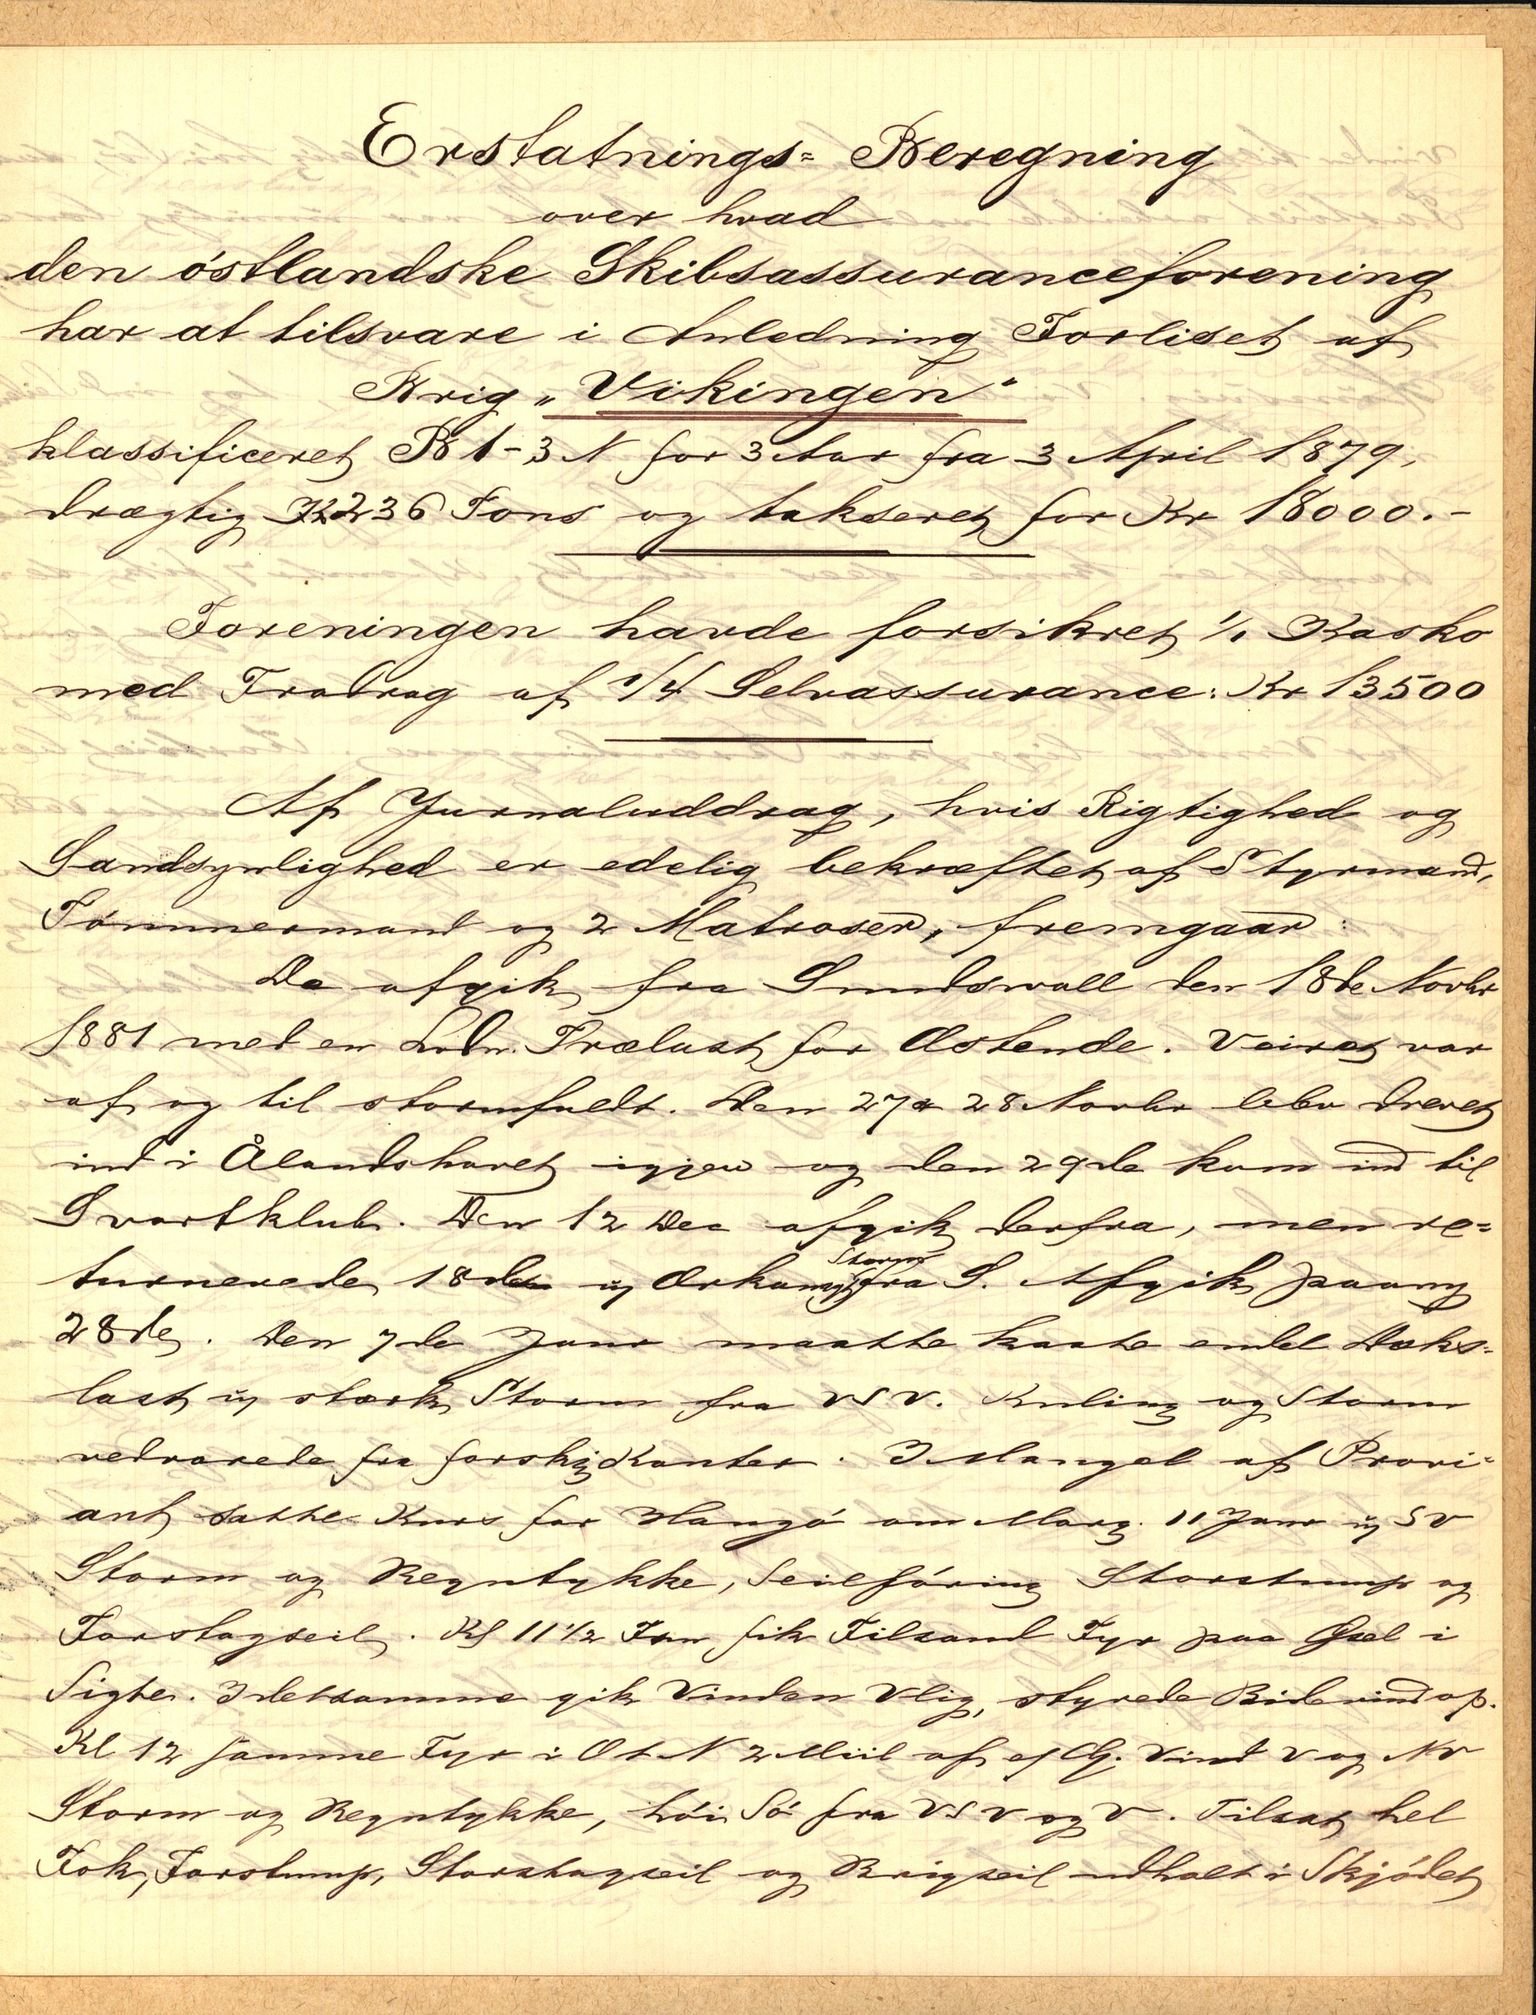 Erstatnings= Beregning
over hvad
den östlandske Skibsassuranceforening
har at tilsvare i Anledning Forliset af
Brig „Vikingen"
klassificeret B 1 - 3 N for 3 Aar fra 3 April 1879,
drægtig 236 Tons og takseret for Kr 18000.-
Foreningen havde forsikret 1/1 Kasko
med Fradrag af 1/4 Selvassurance: Kr 13500
Af Jurnaluddrag, hvis Rigtighed og
Sandsynlighed er edelig bekræftet af Styrmand,
Tømmermand og 2 Matroser, fremgaar:
De afgik fra Sundsvall den 18de Novbr
1881 med en Ladn. Trælast for Ostende. Veiret var
af og til stormfuldt. Den 27 & 28 Novbr blev drevet
ind i Ålandshavet igjen og den 29de kom ind til
Svartklub. Den 12 Dec afgik derfra, men re=
turnerede 18de Orkan Storm fra S. Afgik paany
28de. Den 7de Janr maatte kaste endel Dæks-
last stærk Storm fra VSV. Kuling og Storm
vedvarede fra forskj Kanter. I Mangel af Provi-
ant satte Kurs for Hangö om Morg. 11 Janr SV
Storm og Regntykke, Seilföring Storstump og
Forstagseil. Kl 11 1/2 Fm fik Filsand Fyr paa Ösel i
Sigte. I detsamme gik Vinden Vlig, styrede Bidevind op.
Kl 12 samme Fyr i O t N 2 Miil af Vind V og NV
Storm og Regntykke, höi Sö fra VSV og V. Tilsat hel
Fok, Forstump, Storstagseil og Brigseil udhalt i Skjödet